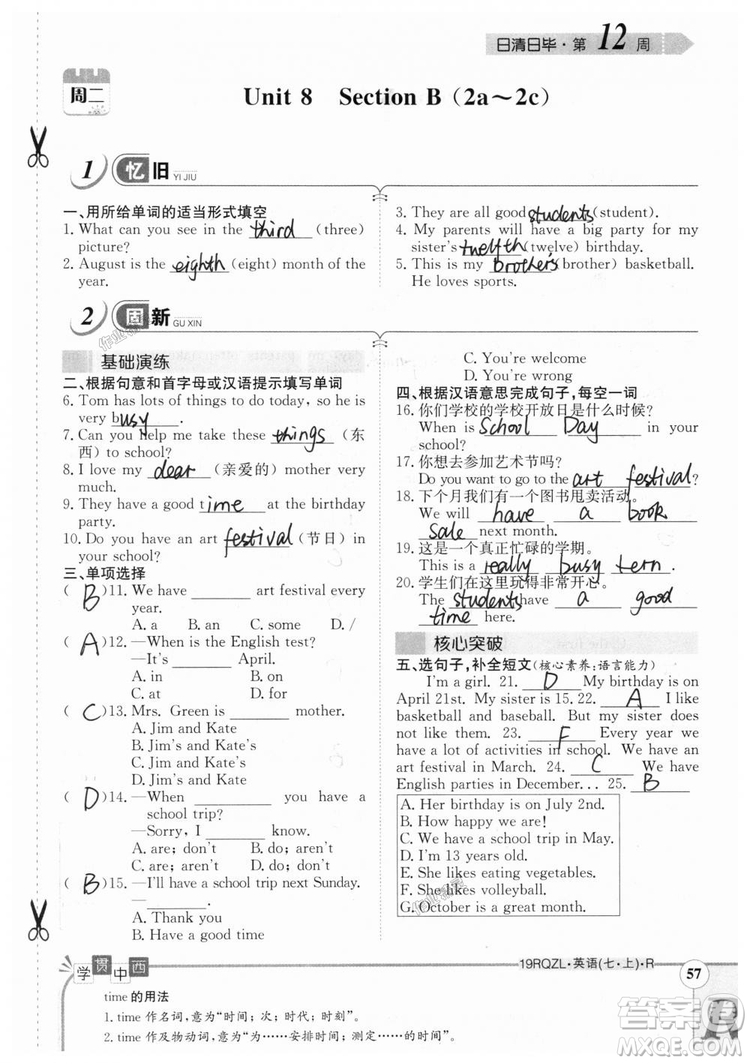 日清日毕·第12周
周二
Unit 8 Section B（2a～2c）
1 忆 旧 YI JIU
一、用所给单词的适当形式填空
1. What can you see in the third (three)
picture?
2. August is the eighth (eight) month of the
year.
3. They are all good students (student).
4. My parents will have a big party for my
sister's twelfth (twelve) birthday.
5. This is my brother's (brother) basketball.
He loves sports.
2 固 新 GU XIN
基础演练
二、根据句意和首字母或汉语提示填写单词
6. Tom has lots of things to do today, so he is
very busy.
7. Can you help me take these things (东
西) to school?
8. I love my dear (亲爱的) mother very
much.
9. They have a good time at the birthday
party.
10. Do you have an art festival (节日) in
your school?
三、单项选择
( B )11. We have ________ art festival every
year.
A. a B. an C. some D. /
( A )12. —When is the English test?
—It's ________ April.
A. in B. on
C. at D. from
( C )13. Mrs. Green is ________ mother.
A. Jim and Kate
B. Jim's and Kate's
C. Jim and Kate's
D. Jim's and Kate
( D )14. —When ________ you have a
school trip?
—Sorry, I ________ know.
A. are; don't B. do; aren't
C. are; aren't D. do; don't
( B )15. —I'll have a school trip next Sunday.
—________.
A. Thank you
B. Have a good time
C. You're welcome
D. You're wrong
四、根据汉语意思完成句子，每空一词
16. 你们学校的学校开放日是什么时候?
When is School Day in your
school?
17. 你想去参加艺术节吗?
Do you want to go to the art festival?
18. 下个月我们有一个图书甩卖活动。
We will have a book
sale next month.
19. 这是一个真正忙碌的学期。
This is a really busy tern.
20. 学生们在这里玩得非常高兴。
The students have a good
time here.
核心突破
五、选句子，补全短文(核心素养:语言能力)
I'm a girl. 21. D My birthday is on
April 21st. My sister is 15. 22. A I like
basketball and baseball. But my sister does
not like them. 23. F Every year we
have a lot of activities in school. We have an
art festival in March. 24. C We have
English parties in December... 25. B
A. Her birthday is on July 2nd.
B. How happy we are!
C. We have a school trip in May.
D. I'm 13 years old.
E. She likes eating vegetables.
F. She likes volleyball.
G. October is a great month.
学贯中西
19RQZL·英语(七·上)·R
57
time 的用法
1. time 作名词，意为“时间；次；时代；时刻”。
2. time 作及物动词，意为“为……安排时间；测定……的时间”。
MXQE.COM